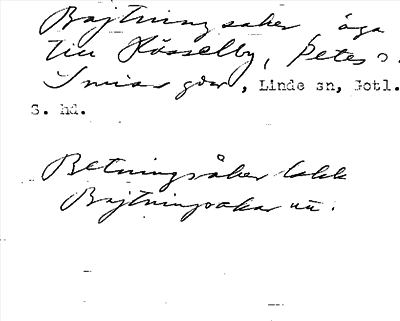 Bajtningsaker äga
till Hässelby, Petes o.
Smiss gdar, Linde sn, Gotl.
S. hd.
Betningsåker kallk
Bajtningsakar uti.